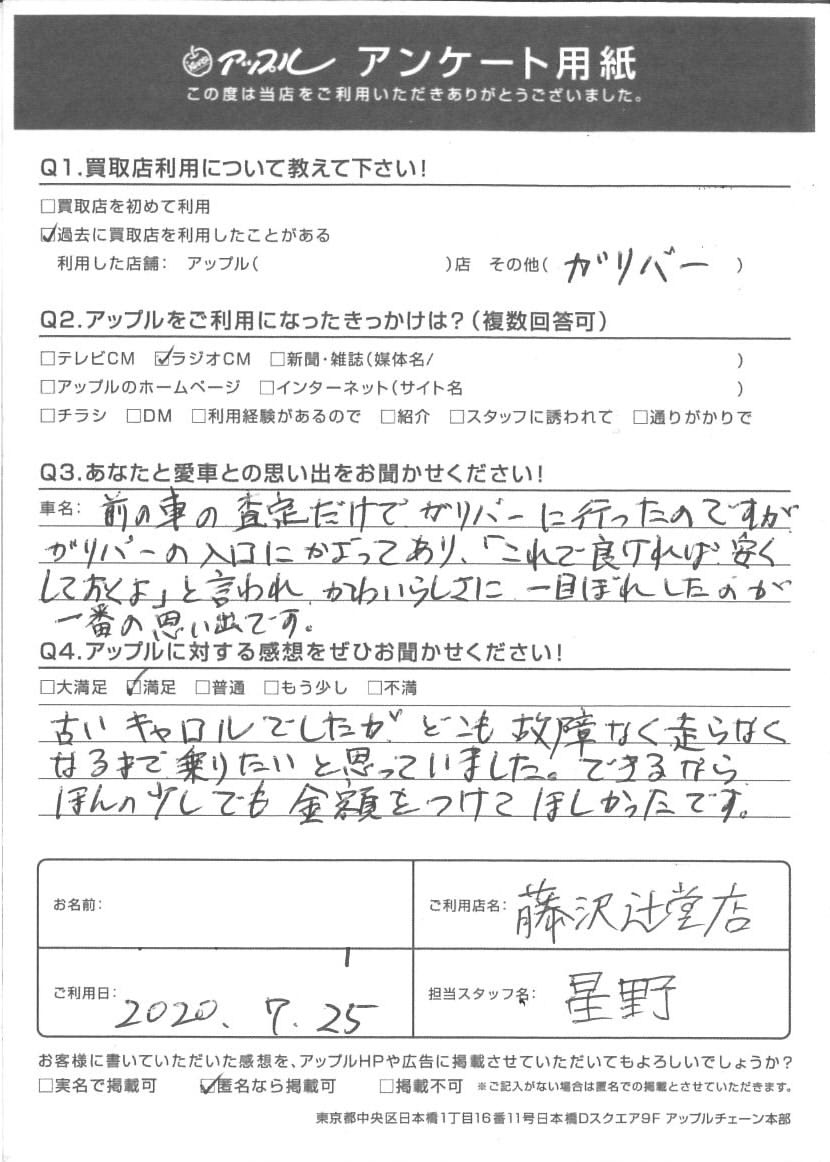 アップル アンケート用紙
この度は当店をご利用いただきありがとうございました。
Q1.買取店利用について教えて下さい!
□買取店を初めて利用
☑過去に買取店を利用したことがある
利用した店舗: アップル( )店 その他( ガリバー )
Q2.アップルをご利用になったきっかけは?(複数回答可)
□テレビCM ☑ラジオCM □新聞・雑誌(媒体名/ )
□アップルのホームページ □インターネット(サイト名 )
□チラシ □DM □利用経験があるので □紹介 □スタッフに誘われて □通りがかりで
Q3.あなたと愛車との思い出をお聞かせください!
車名: 前の車の査定だけでガリバーに行ったのですが
ガリバーの入口にかざってあり、「これで良ければ安く
しておくよ」と言われ かわいらしさに 一目ぼれしたのが
一番の思い出です。
Q4.アップルに対する感想をぜひお聞かせください!
□大満足 ☑満足 □普通 □もう少し □不満
古いキャロルでしたが どこも故障なく走らなく
なるまで乗りたいと思っていました。できるなら
ほんの少しでも金額をつけてほしかったです。
お名前:
ご利用店名: 藤沢辻堂店
ご利用日: 2020. 7. 25
担当スタッフ名: 星野
お客様に書いていただいた感想を、アップルHPや広告に掲載させていただいてもよろしいでしょうか?
□実名で掲載可 ☑匿名なら掲載可 □掲載不可 ※ご記入がない場合は匿名での掲載とさせていただきます。
東京都中央区日本橋1丁目16番11号日本橋Dスクエア9F アップルチェーン本部